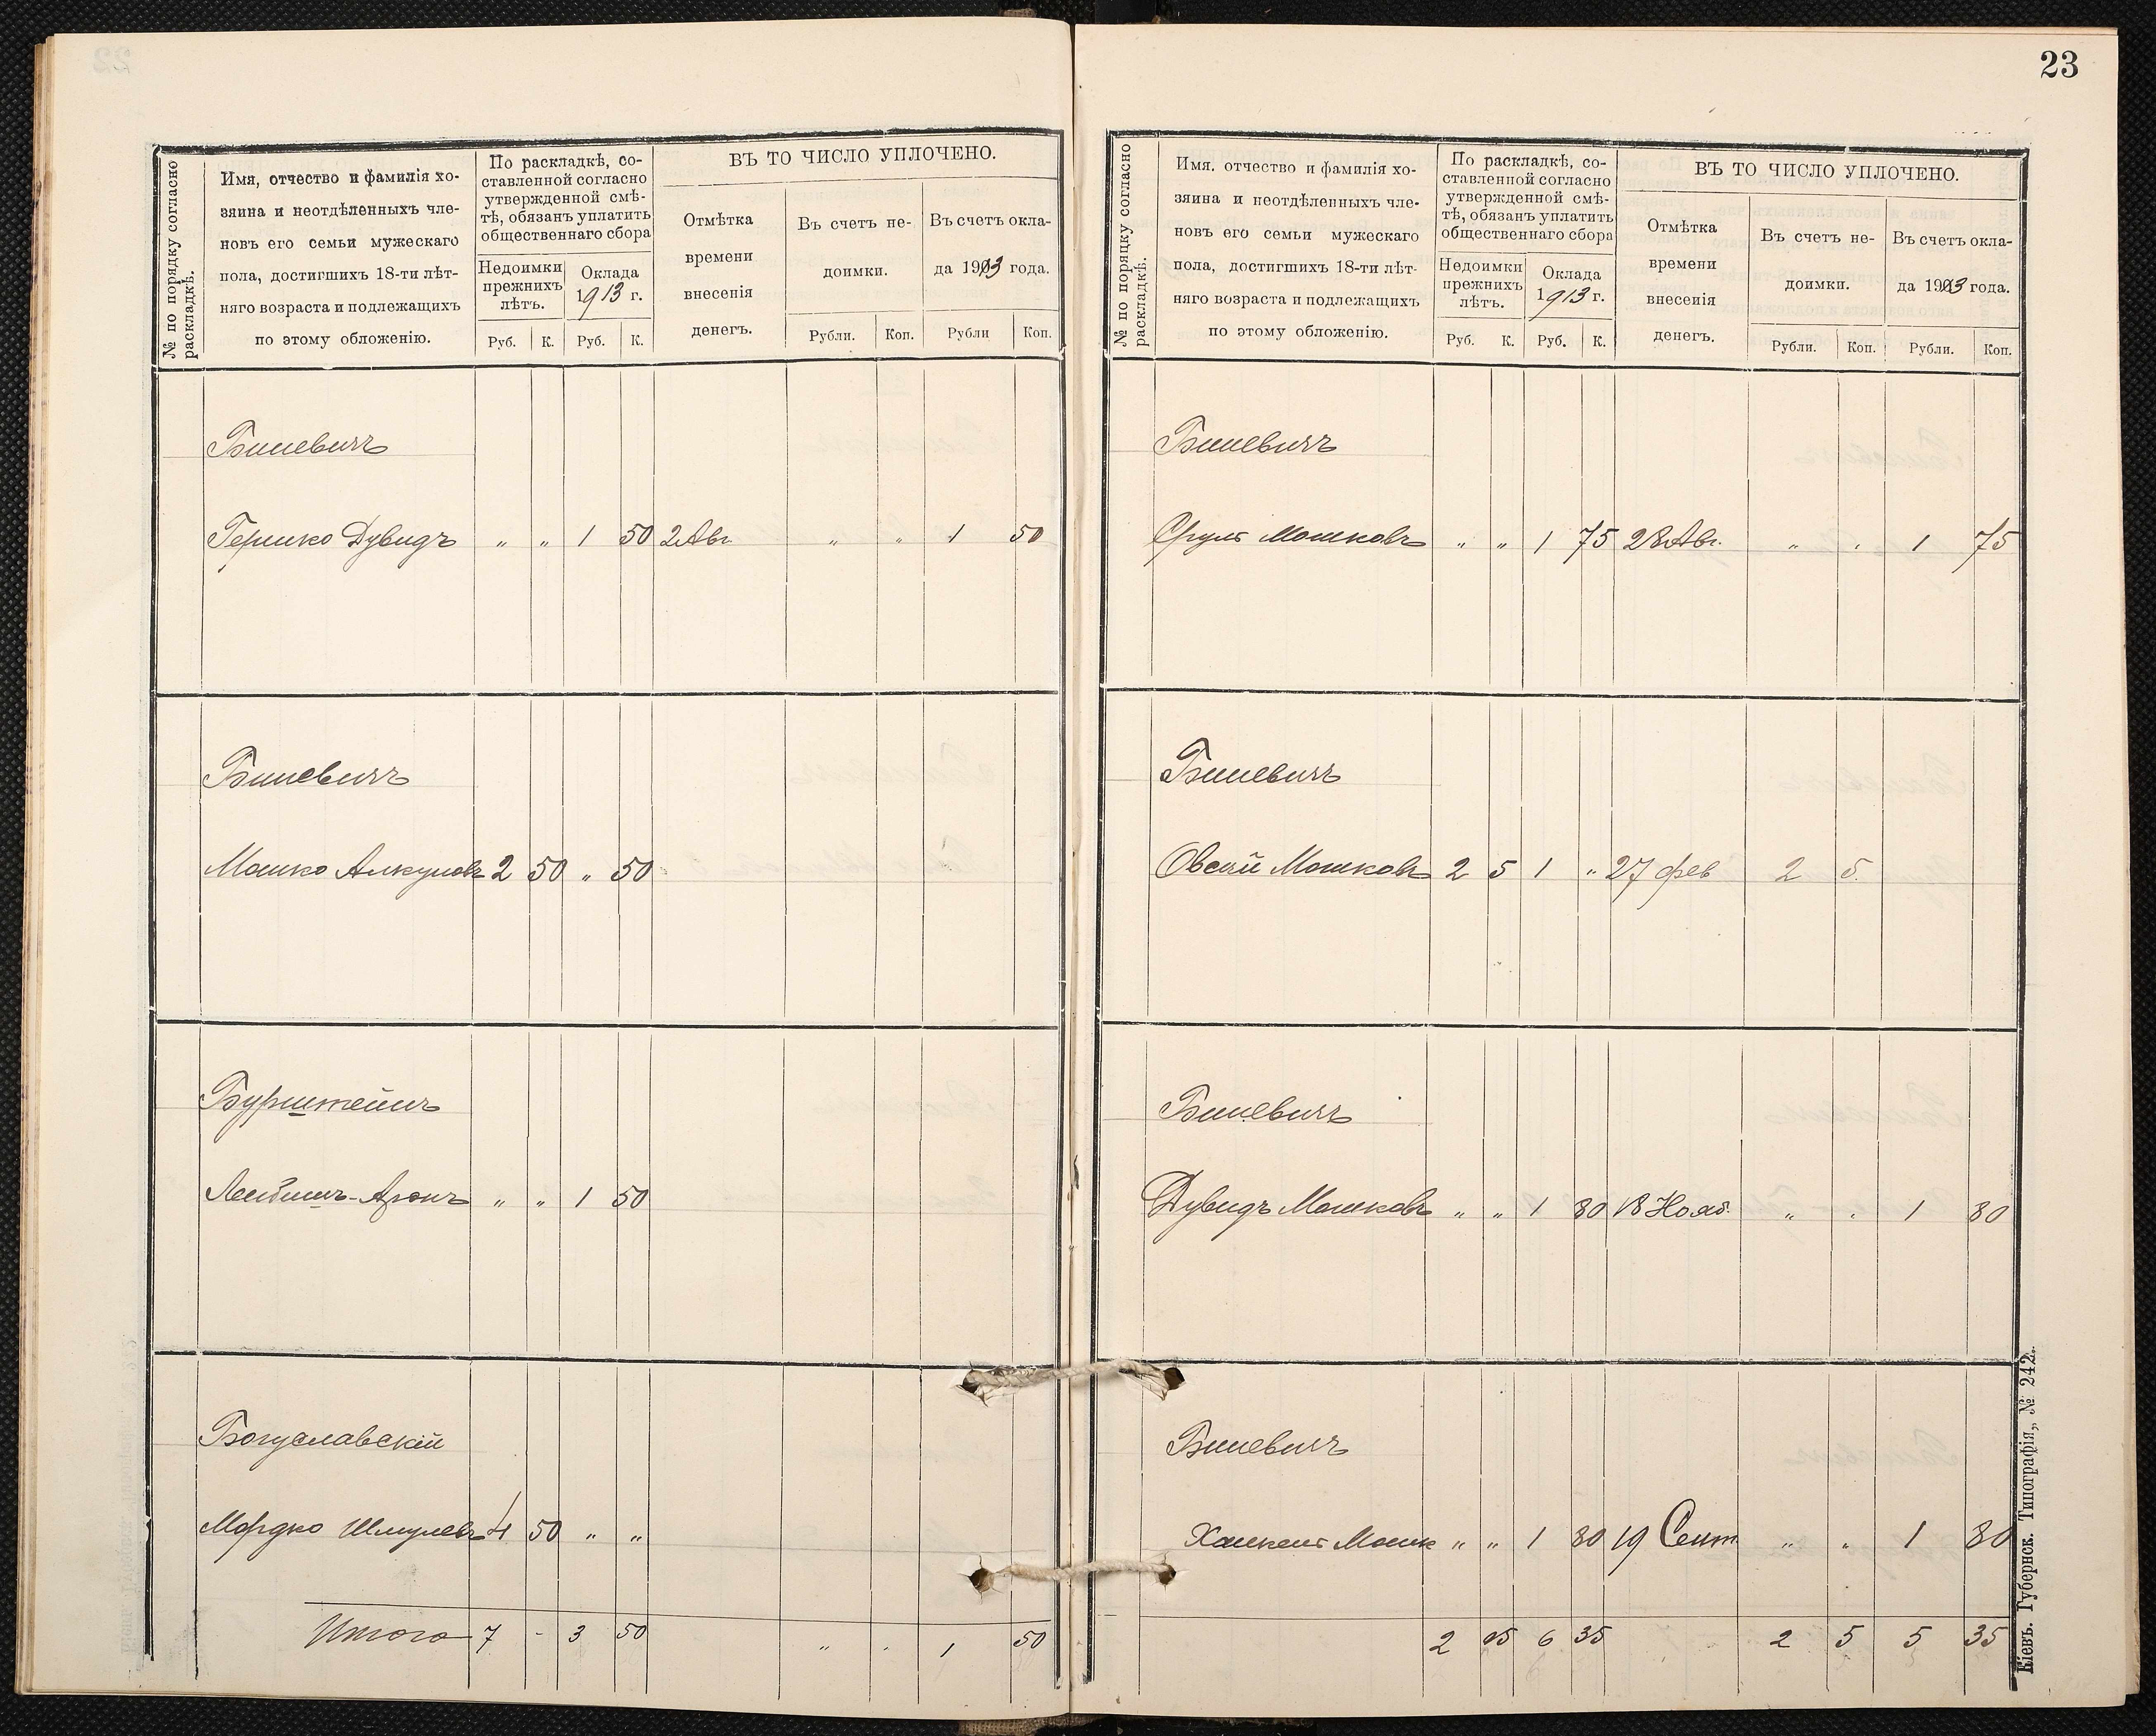 № по порядку согласно
раскладкѣ.
Имя, отчество и фамилія хо-
зяина и неотдѣленныхъ чле-
новъ его семьи мужескаго
пола, достигшихъ 18-ти лѣт-
няго возраста и подлежащихъ
по этому обложенію.
По раскладкѣ, со-
ставленной согласно
утвержденной смѣ-
тѣ, обязанъ уплатить
общественнаго сбора
Недоимки
прежнихъ
лѣтъ.
Оклада
1913 г.
Руб. К. Руб. К.
ВЪ ТО ЧИСЛО УПЛОЧЕНО.
Отмѣтка
времени
внесенія
денегъ.
Въ счетъ не-
доимки.
Въ счетъ окла-
да 1913 года.
Рубли. Коп. Рубли Коп.
Биневичъ
Гершко Дувидъ " " 1 50 2 Авг " " 1 50
Биневичъ
Мошко Алкуновъ 2 50 " 50
Бурштейнъ
Лейбишъ-Аронъ " " 1 50
Богуславскій
Мордко Шмулевъ 4 50 " "
Итого 7 - 3 50 " " 1 50
23
№ по порядку согласно
раскладкѣ.
Имя. отчество и фамилія хо-
зяина и неотдѣленныхъ чле-
новъ его семьи мужескаго
пола, достигшихъ 18-ти лѣт-
няго возраста и подлежащихъ
по этому обложенію.
По раскладкѣ, со-
ставленной согласно
утвержденной смѣ-
тѣ, обязанъ уплатить
общественнаго сбора
Недоимки
прежнихъ
лѣтъ.
Оклада
1913 г.
Руб. К. Руб. К.
ВЪ ТО ЧИСЛО УПЛОЧЕНО.
Отмѣтка
времени
внесенія
денегъ.
Въ счетъ не-
доимки.
Въ счетъ окла-
да 1913 года.
Рубли. Коп. Рубли. Коп.
Биневичъ
Сруль Мошковъ " " 1 75 28 Авг. " " 1 75
Биневичъ
Овсей Мошковъ 2 5 1 " 27 фев 2 5
Биневичъ
Дувидъ Мошковъ " " 1 80 18 Нояб. " " 1 80
Биневичъ
Хаскель Мошк " " 1 80 19 Сент " " 1 80
2 6 35 2 5 5 35
Кіевъ. Губернск. Типографія, № 242.